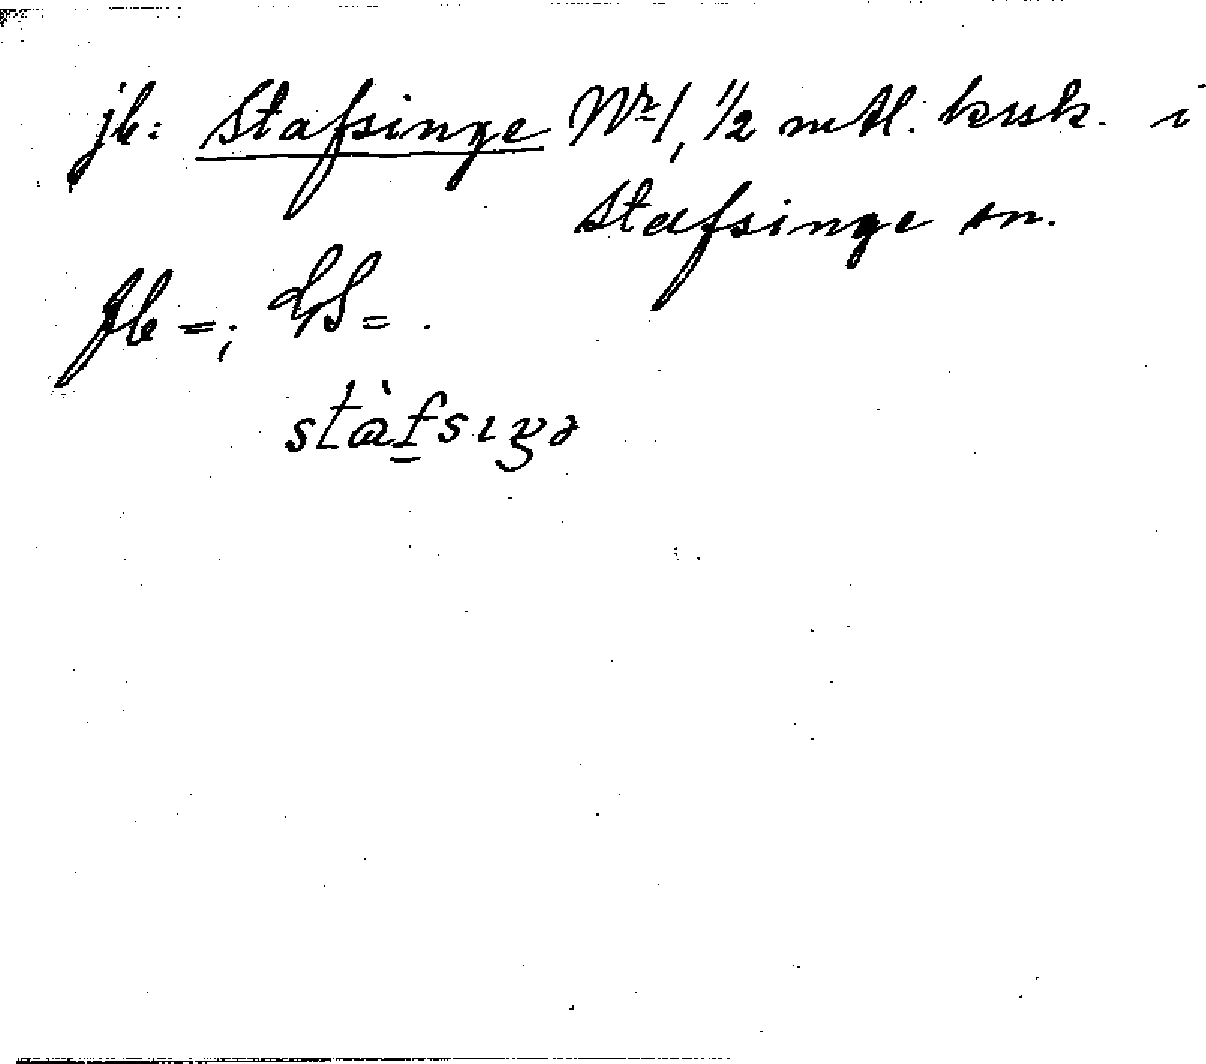 jb: Stafsinge Nr 1, 1/2 mtl. krsk. i
Stafsinge sn.
Jb =; GS = .
stàfsıŋə